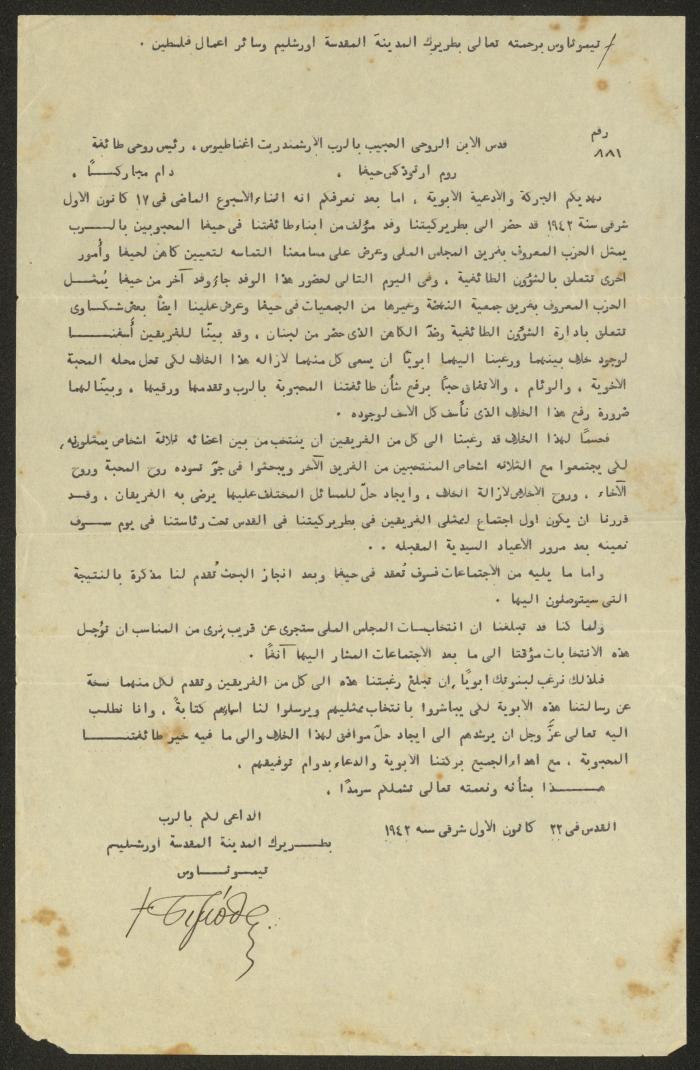 تيموثاوس برحمته تعالى بطريرك المدينة المقدسة اورشليم وسائر اعمال فلسطين .
رقم
٨٨١
قدس الابن الروحي الحبيب بالرب الارشمندريت اغناطيوس ، رئيس روحي طائفة
روم ارثوذكس حيفا ، دام مباركــا ،
نهديكم البركة والادعية الابوية ، اما بعد نعرفكم انه اثناء الاسبوع الماضي في ١٧ كانون الاول
شرقي سنة ١٩٤٢ قد حضر الى بطريركيتنا وفد مؤلف من ابناء طائفتنا في حيفا المحبوبين بالــرب
يمثل الحزب المعروف بفريق المجلس الملي وعرض على مسامعنا التماسه لتعيين كاهن لحيفا وأمور
اخرى تتعلق بالشؤون الطائفية ، وفي اليوم التالي لحضور هذا الوفد جاء وفد آخر من حيفا يُمثــل
الحزب المعروف بفريق جمعية النهضة وغيرها من الجمعيات في حيفا وعرض علينا ايضاً بعض شكاوى
تتعلق بادارة الشؤون الطائفية وضدّ الكاهن الذى حضر من لبنان ، وقد بيّنّا للفريقين أسفنــا
لوجود خلاف بينهما ورغبنا اليهما ابويّاً ان يسعى كل منهما لازالة هذا الخلاف لكي تحل محله المحبة
الاخوية ، والوئام ، والاتفاق حبّاً برفع شأن طائفتنا المحبوبة بالرب وتقدمها ورقيها ، وبيّنّا لهما
ضرورة رفع هذا الخلاف الذى نأسف كل الاسف لوجوده .
فحسماً لهذا الخلاف قد رغبنا الى كل من الفريقين ان ينتخب من بين اعضائه ثلاثة اشخاص يمثلونه ،
لكي يجتمعوا مع الثلاثة اشخاص المنتخبين من الفريق الآخر ويبحثوا في جوّ تسوده روح المحبة وروح
الآخاء ، وروح الاخلاص لازالة الخلاف ، وايجاد حلّ للمسائل المختلف عليها يرضى به الفريقان ، وقــد
قررنا ان يكون اول اجتماع لممثلي الفريقين في بطريركيتنا في القدس تحت رئاستنا في يوم ســوف
نعينه بعد مرور الاعياد السيدية المقبله . .
واما ما يليه من الاجتماعات فسوف تُعقد في حيفا وبعد انجاز البحث تُقدم لنا مذكرة بالنتيجة
التي سيتوصلون اليها .
ولما كنا قد تبلغنا ان انتخابات المجلس الملي ستجرى عن قريب نرى من المناسب ان تؤجل
هذه الانتخابات مؤقتا الى ما بعد الاجتماعات المشار اليها آنفاً .
فلذلك نرغب لبنوتك ابويّاً ان تبلغ رغبتنا هذه الى كل من الفريقين وتقدم لكل منهما نسخة
عن رسالتنا هذه الابوية لكي يباشروا بانتخاب ممثليهم ويرسلوا لنا اسماءهم كتابةً ، وانا نطلب
اليه تعالى عزَّ وجل ان يرشدهم الى ايجاد حلّ موافق لهذا الخلاف والى ما فيه خير طائفتنــا
المحبوبة ، مع اهداء الجميع بركتنا الابوية والدعاء بدوام توفيقهم ،
هــذا بشأنه ونعمته تعالى تشملكم سرمدًا ،
القدس في ٢٢ كانون الاول شرقي سنه ١٩٤٢
الداعى لكم بالرب
بطــريرك المدينة المقدسة اورشليم
تيمــوثــاوس